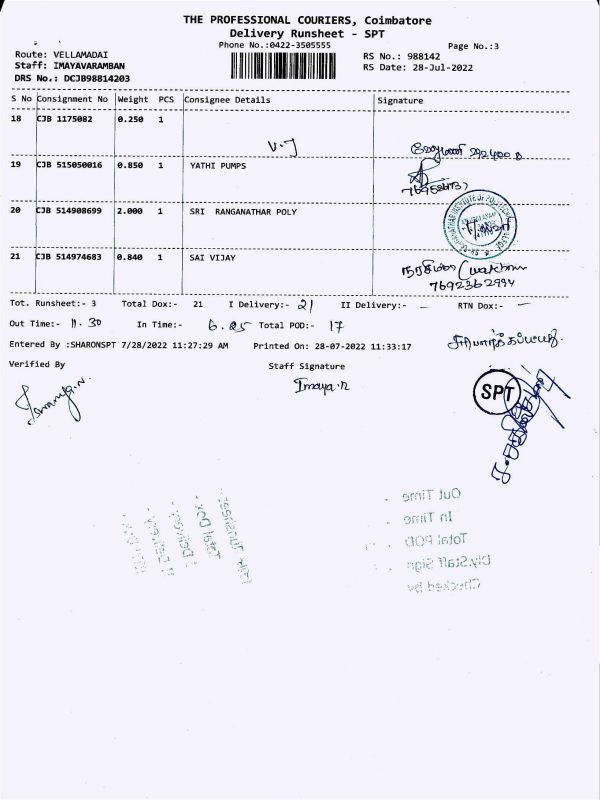 THE PROFESSIONAL COURIERS, Coimbatore
Delivery Runsheet - SPT
Phone No.:0422-3505555 Page No.:3
Route: VELLAMADAI RS No.: 988142
Staff: IMAYAVARAMBAN RS Date: 28-Jul-2022
DRS No.: DCJB98814203
S No Consignment No Weight PCS Consignee Details Signature
18 CJB 1175082 0.250 1
V.J
19 CJB 515050016 0.850 1 YATHI PUMPS
20 CJB 514908699 2.000 1 SRI RANGANATHAR POLY
21 CJB 514974683 0.840 1 SAI VIJAY
7692362994
Tot. Runsheet:- 3 Total Dox:- 21 I Delivery:- 21 II Delivery:- - RTN Dox:- -
Out Time:- 11.30 In Time:- 6.25 Total POD:- 17
Entered By :SHARONSPT 7/28/2022 11:27:29 AM Printed On: 28-07-2022 11:33:17
Verified By Staff Signature
Imaya.n
SPT
Out Time
In Time
Total POD
Dly.Staff Sign
Checked by